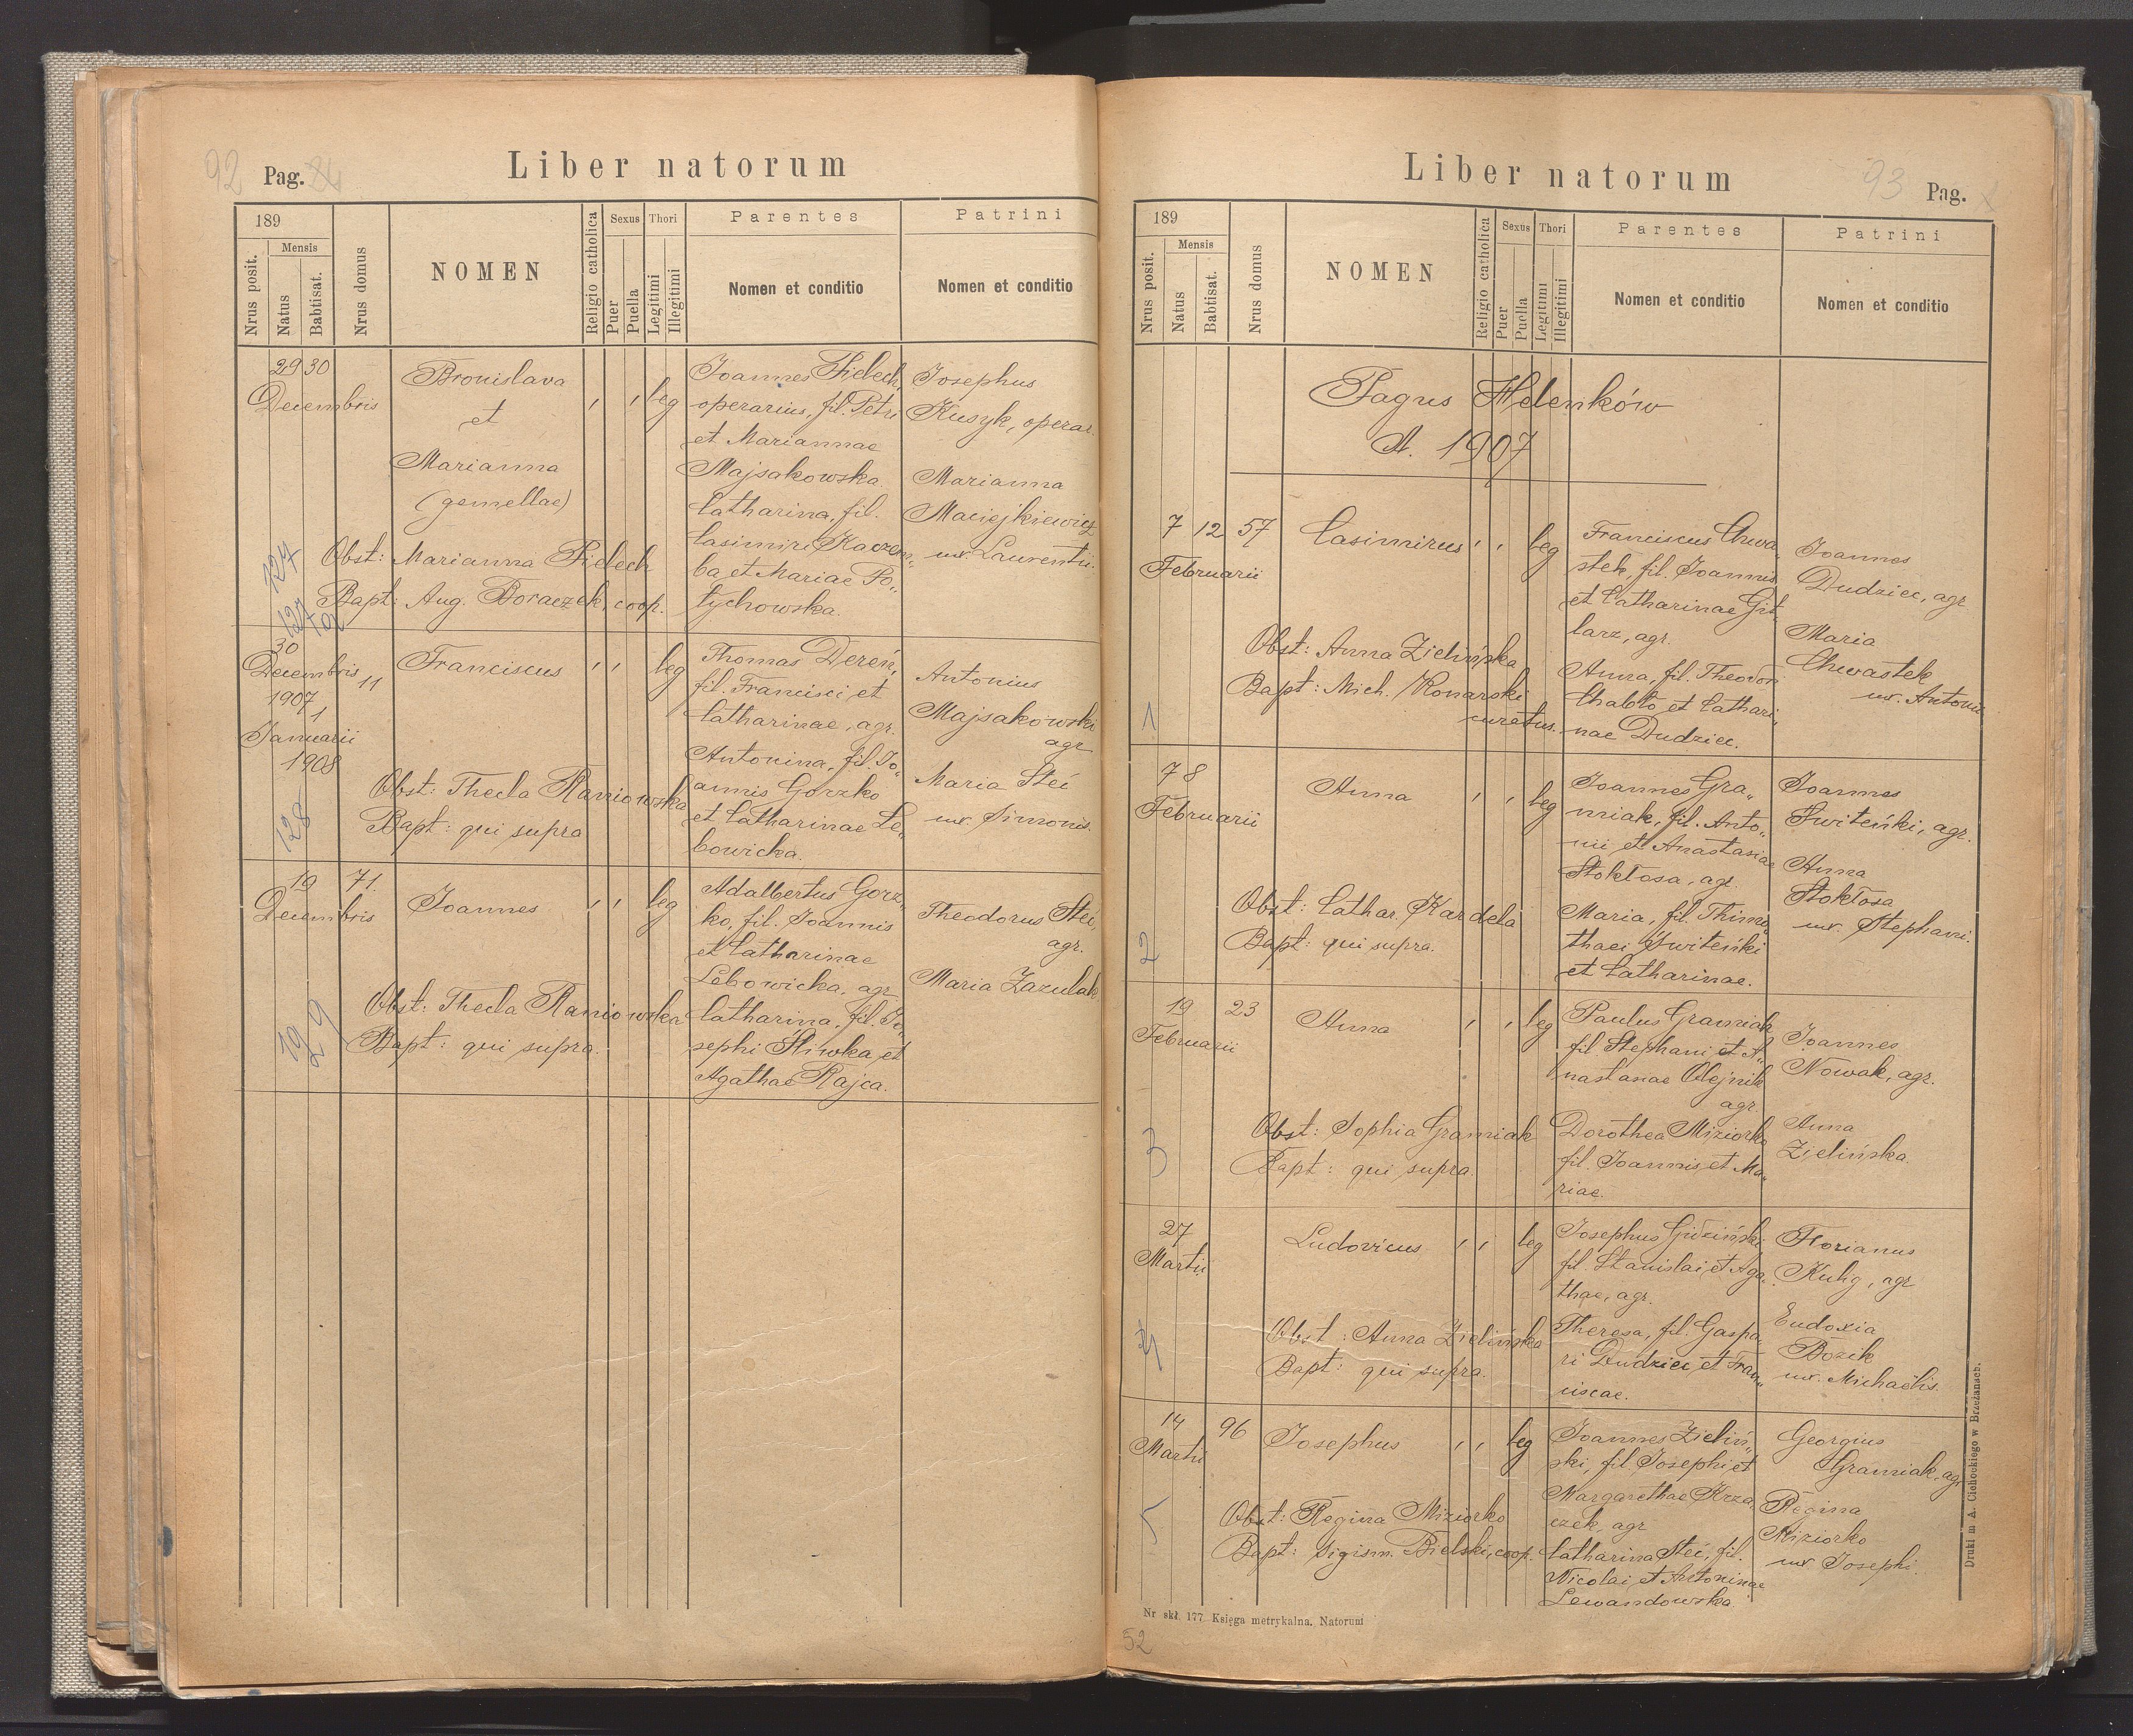 92 Pag. 84
Liber natorum
189
Nrus posit.
Mensis
Natus
Babtisat.
Nrus domus
NOMEN
Religio catholica
Sexus
Puer
Puella
Thori
Legitimi
Illegitimi
Parentes
Nomen et conditio
Patrini
Nomen et conditio
29 30
Decembris
Bronislava
et
Marianna
(gemellae)
leg
Joannes Fielech,
operarius, fil. Petri
et Mariannae
Majsakowska.
Catharina, fil.
Casimiri Kaczem„
ba et Mariae Po„
tychowska.
Josephus
Kusyk, operar.
Marianna
Maciejkiewicz
ux. Laurentii.
Obst: Marianna Fielech
Bapt: Aug. Boraczek, coop.
127
127
30
Decembris
1907
1
Januarii
1908
11
Franciscus
leg
Thomas Dereń,
fil. Francisci et
Catharinae, agr.
Antonina, fil. Jo„
annis Gorzko
et Catharinae Le„
bowicka.
Antonius
Majsakowski
agr
Maria Steć
ux. Simonis.
Obst: Thecla Raniowska
Bapt: qui supra
128
19
Decembris
71.
Joannes
leg
Adalbertus Gorz„
ko, fil. Joannis
et Catharinae
Lebowicka, agr
Catharina, fil. Jo„
sephi Śliwka et
Agathae Rajca.
Theodorus Steć,
agr.
Maria Zazulak
Obst: Thecla Raniowska
Bapt: qui supra.
129
93 Pag.
Liber natorum
189
Nrus posit.
Mensis
Natus
Babtisat.
Nrus domus
NOMEN
Religio catholica
Sexus
Puer
Puella
Thori
Legitimi
Illegitimi
Parentes
Nomen et conditio
Patrini
Nomen et conditio
Pagus Helenków
A. 1907
7 12 57
Februarii
Casimirus
leg
Franciscus Chwa„
stek, fil. Joannis
et Catharinae Git„
larz, agr.
Anna, fil. Theodori
Chabło et Cathari„
nae Dudziec.
Joannes
Dudziec, agr
Maria
Chwastek
ux. Antonii
Obst: Anna Zielińska
Bapt: Mich. Konarski
curatus.
1
7 8
Februarii
Anna
leg
Joannes Gra„
niak, fil. Anto„
nii et Anastasiae
Stokłosa, agr.
Maria, fil. Thimo„
thaei Świteński
et Catharinae.
Joannes
Świteński, agr.
Anna
Stokłosa
ux. Stephani.
Obst: Cathar. Kardela
Bapt: qui supra.
2
19 23
Februarii
Anna
leg
Paulus Graniak
fil. Stephani et A„
nastasiae Olejnik
agr.
Dorothea Miziorko
fil. Joannis et Ma„
riae.
Joannes
Nowak, agr.
Anna
Zielińska.
Obst: Sophia Graniak
Bapt: qui supra.
3
27
Martii
Ludovicus
leg
Josephus
fil. Stanislai et Aga„
thae, agr.
Theresa, fil. Gaspa„
ri Dudziec et Fran„
ciscae.
Florianus
Kulig, agr
Eudoxia
Bozik
ux. Michaëlis.
Obst: Anna Zielińska
Bapt: qui supra.
4
14 96
Martii
Josephus
leg
Joannes Zieliń„
ski, fil. Josephi et
Margarethae Krza„
czek, agr
Catharina Steć, fil.
Nicolai et Antoninae
Lewandowska.
Georgius
Graniak, agr
Regina
Miziorko
ux Josephi.
Obst: Regina Miziorko
Bapt: Sigism. Bielski, coop.
5
Druki m A. Cichockiego w Brzeżanach.
Nr skł. 177. Księga metrykalna. Natorum
52